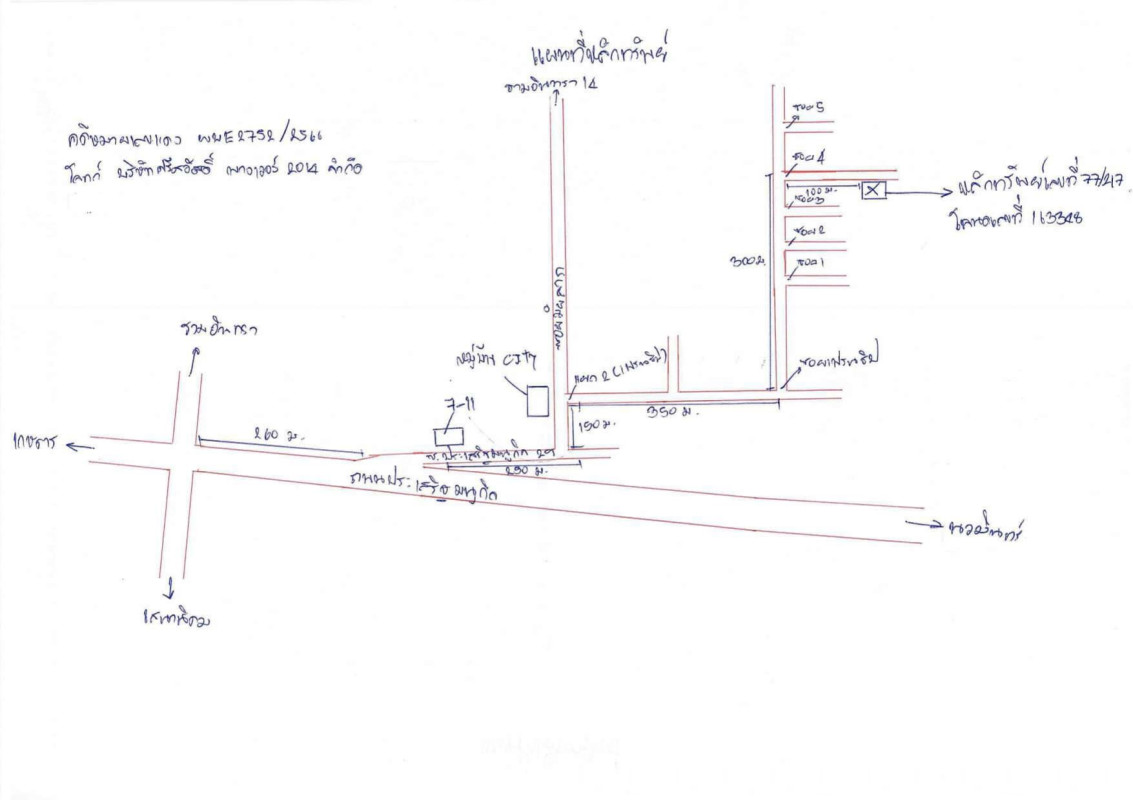 แผนที่หลักทรัพย์
รามอินทรา 14
คดีหมายเลขแดง ผบE2752/2566
โจทก์ บริษัทศรีสวัสดิ์ พาวเวอร์ 2014 จำกัด
ซอย 5
ซอย 4
100 ม.
หลักทรัพย์เลขที่ 77/47
โฉนดเลขที่ 163348
ซอย 3
ซอย 2
300 ม.
ซอย 1
รามอินทรา
หมู่บ้าน city
แยก 2 (เฟรนชิป)
ซอยเฟรนชิป
7-11
350 ม.
150 ม.
เกษตร
260 ม.
ซ.ประเสริฐมนูกิจ 29
290 ม.
ถนนประเสริฐมนูกิจ
นวมินทร์
เสนานิคม